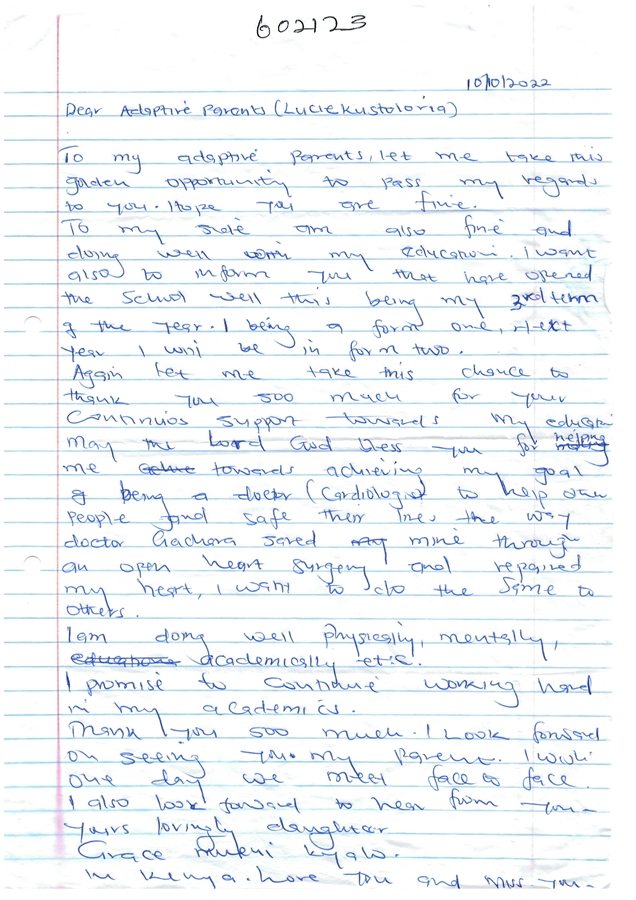 602123
10/10/2022
Dear Adaptive Parents (Lucie Kustoloria)
To my adaptive Parents, let me take this
golden opportunity to pass my regards
to you. I hope you are fine.
To my side am also fine and
doing well with my education. I want
also to inform you that have opened
the School well this being my 3rd term
of the year. I being a form one, next
year I will be in form two.
Again let me take this chance to
thank you soo much for your
Continuos support towards my
may the Lord God bless you for helping
me towards achieving my goal
of being a doctor (Cardiologist) to help
People and safe their lives the way
doctor Gachara saved mine through
an open heart surgery and repaired
my heart, I want to do the same to
others.
I am doing well physically, mentally,
academically etc.
I promise to continue working hard
in my academics.
Thank you soo much. I look forward
on seeing you my parent. I wish
one day we meet face to face.
I also look forward to hear from you-
yours lovingly daughter
Grace Mukui Kyalo.
in Kenya. love you and miss you-